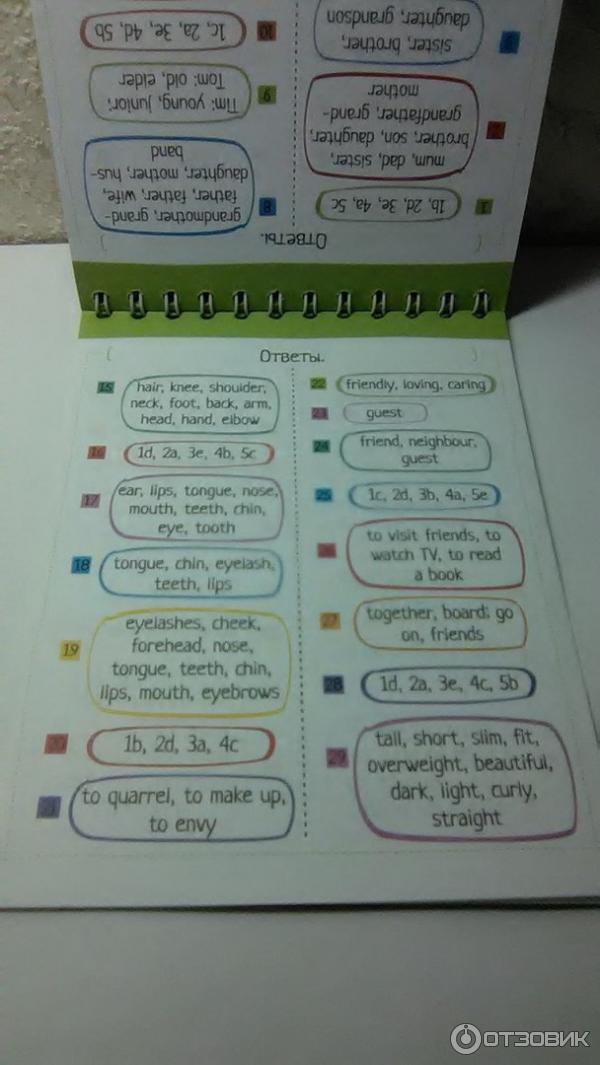 Ответы.
1 1b, 2d, 3e, 4a, 5c
2 mum, dad, sister,
brother, son, daughter,
grandfather, grand-
mother
3 sister, brother,
daughter, grandson
8 grandmother, grand-
father, father, wife,
daughter, mother, hus-
band
9 Tim: young, junior;
Tom: old, elder
10 1c, 2a, 3e, 4d, 5b
Ответы.
15 hair, knee, shoulder,
neck, foot, back, arm,
head, hand, elbow
16 1d, 2a, 3e, 4b, 5c
17 ear, lips, tongue, nose,
mouth, teeth, chin,
eye, tooth
18 tongue, chin, eyelash,
teeth, lips
19 eyelashes, cheek,
forehead, nose,
tongue, teeth, chin,
lips, mouth, eyebrows
20 1b, 2d, 3a, 4c
21 to quarrel, to make up,
to envy
22 friendly, loving, caring
23 guest
24 friend, neighbour,
guest
25 1c, 2d, 3b, 4a, 5e
26 to visit friends, to
watch TV, to read
a book
27 together, board; go
on, friends
28 1d, 2a, 3e, 4c, 5b
29 tall, short, slim, fit,
overweight, beautiful,
dark, light, curly,
straight
ОТЗОВИК